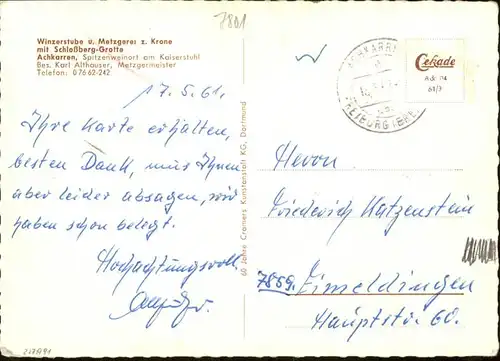 7801
Winzerstube u. Metzgerei z. Krone
mit Schloßberg-Grotte
Achkarren, Spitzenweinort am Kaiserstuhl
Bes. Karl Althauser, Metzgermeister
Telefon: 0 76 62-242
17.5.61.
Ihre Karte erhalten,
besten Dank, müs Ihnen
aber leider absagen, wir
haben schon belegt.
Hochachtungsvoll
60 Jahre Cramers Kunstanstalt KG, Dortmund
ACHKARREN
FREIBURG (BREISGAU)
Cekade
61/3
Herrn
Friederich Katzenstein
7859. Eimeldingen
Hauptstr. 60.